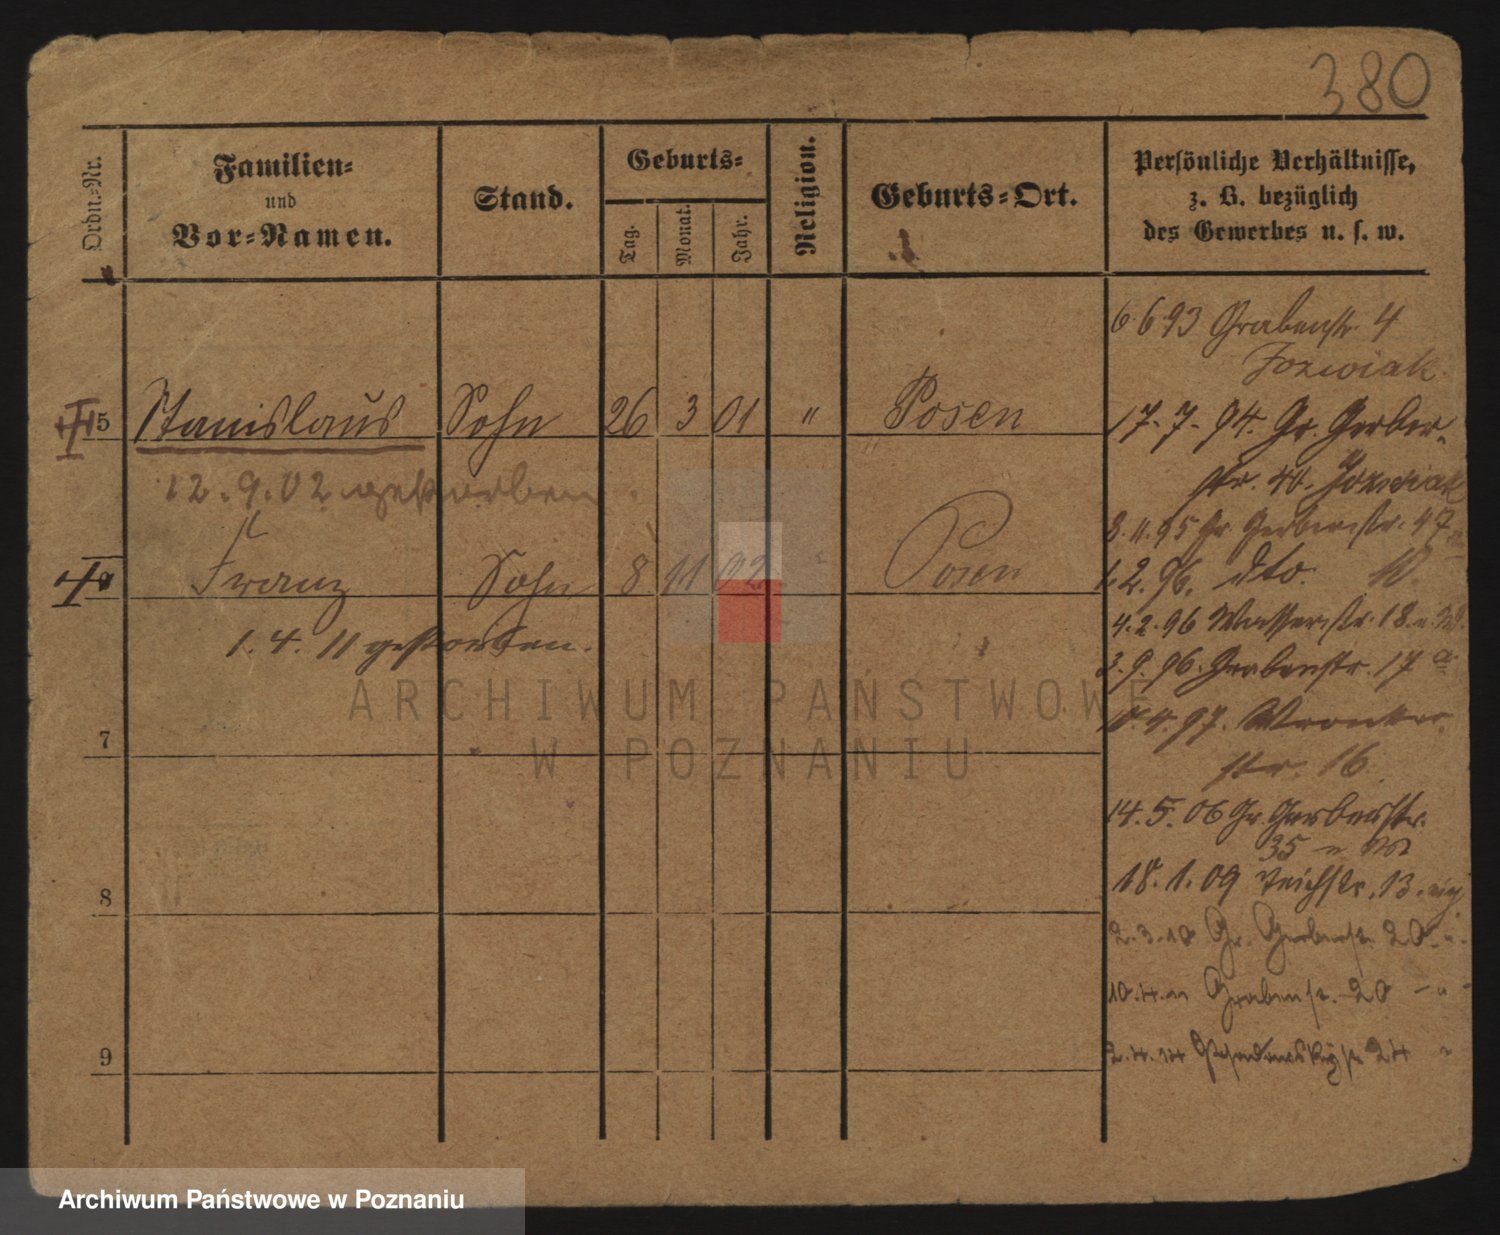 380
Ordn.-Nr.
Familien-
und
Vor-Namen.
Stand.
Geburts-
Tag.
Monat.
Jahr.
Religion.
Geburts-Ort.
Persönliche Verhältnisse,
z. B. bezüglich
des Gewerbes u. s. w.
6 6 93 Grabenstr. 4
Jozwiak.
5 Stanislaus Sohn 26 3 01 " Posen
17. 7. 94. Gr. Gerber-
str. 40. Jozwiak
12. 9. 02 gestorben.
8. 11. 95 Gr. Gerberstr. 47
Franz Sohn 8 11 02 " Posen
1. 2. 96. dto. 10
4. 2. 96 Wasserstr. 18
1. 4. 11 gestorben.
3. 9. 96. Grabenstr. 17 a
4. 97. Wronker-
str. 16
7
14. 5. 06 Gr. Gerberstr.
35
18. 1. 09 Teichstr. 13.
8
2. 3. 10 Gr. Gerberstr. 20
10. 4. 11 Grabenstr. 20 - " -
9
2. 4. 14 24 "
ARCHIWUM PAŃSTWOWE
W POZNANIU
Archiwum Państwowe w Poznaniu